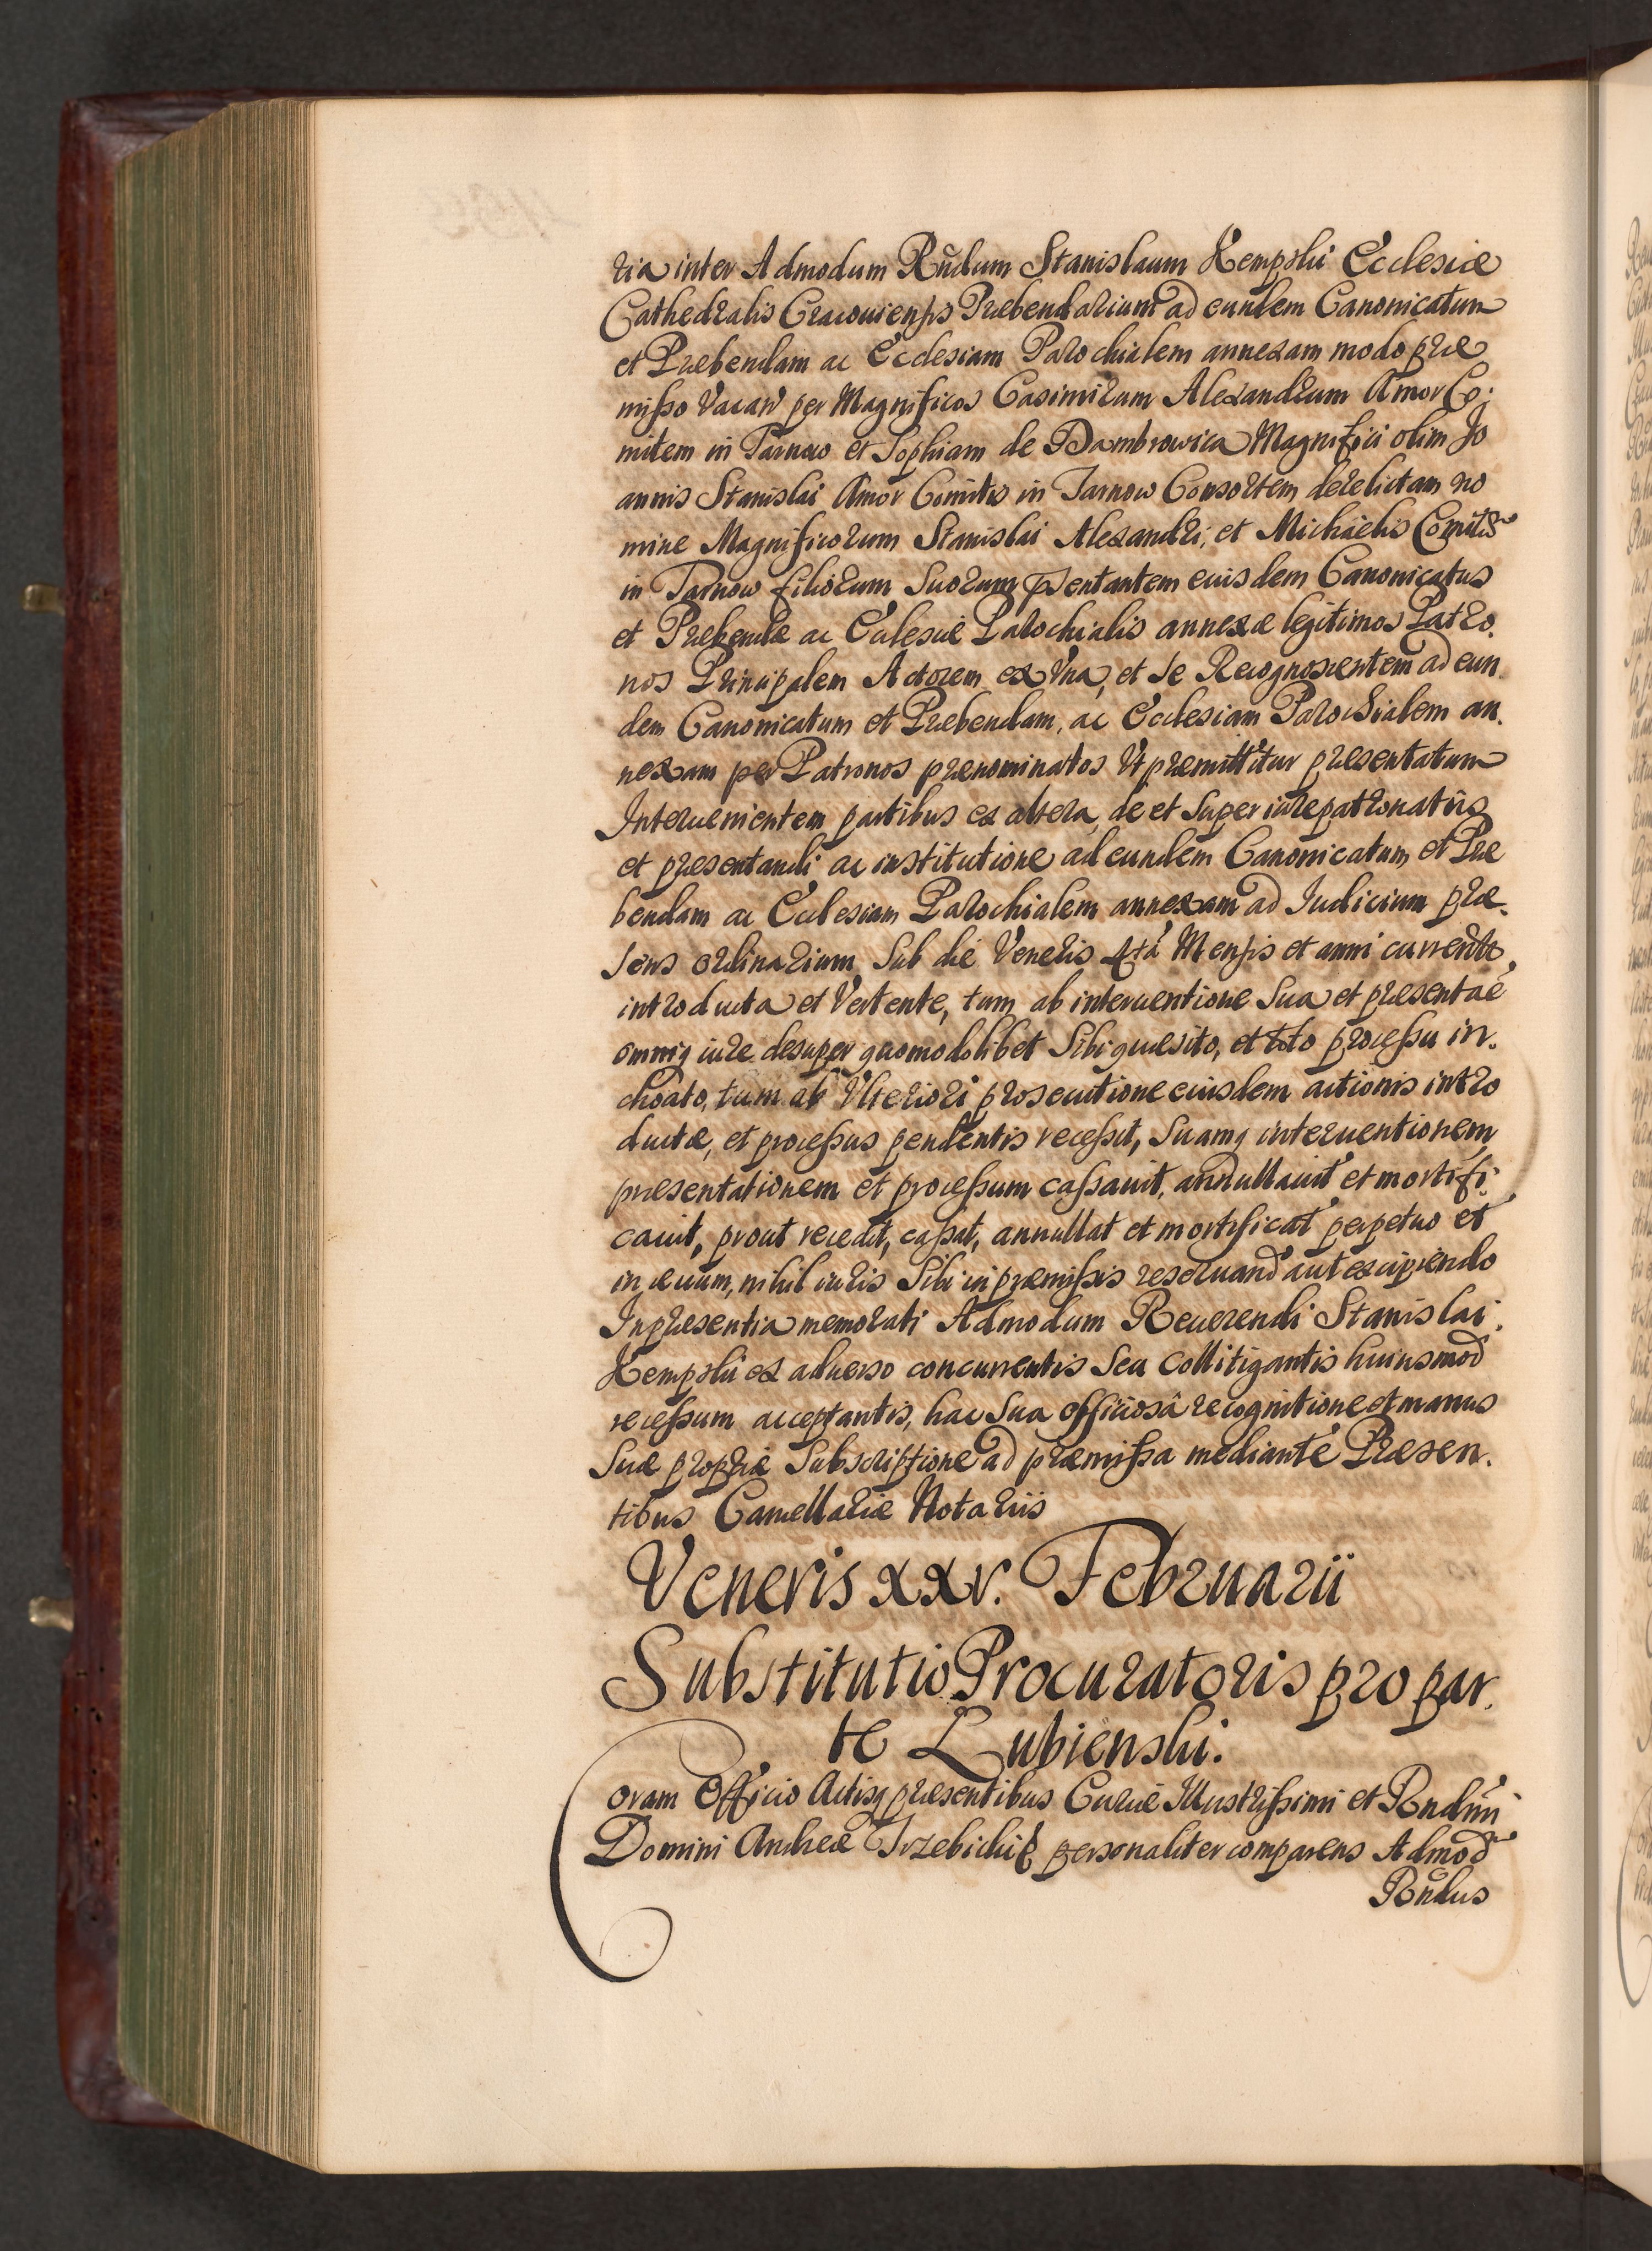 ria inter Admodum Rñdum Stanislaum Kempski Ecclesiæ
Cathedralis Cracouiensis Præbendarium ad eundem Canonicatum
et Præbendam ac Ecclesiam Parochialem annexam modo præ
misso Vacan̄ per Magnificos Casimirum Alexandrum Amor Co:
mitem in Tarnow et Sophiam de Dambrowica Magnifici olim Jo
annis Stanislai Amor Comitis in Tarnow Consortem derelictam no
mine Magnificorum Stanislai Alexandri, et Michaelis Comitũ
in Tarnow filiorum Suorum p̃sentantem eiusdem Canonicatus
et Præbendæ ac Ecclesiæ Parochialis annexæ legitimos Patro.
nos Principalem Actorem ex Vna, et se Recognoscentem ad eun.
dem Canonicatum et Præbendam, ac Ecclesiam Parochialem an.
nexam per Patronos prænominatos Vt præmittitur præsentatum
Interuenientem partibus ex altera, de et Super iurepatronatus
et præsentandi ac institutione ad eundem Canonicatum et Præ
bendam ac Ecclesiam Parochialem annexam ad Iudicium præ.
sens ordinarium Sub die Veneris 4ta Mensis et anni currente,
introducta et Vertente, tum ab interuentione Sua et præsentãe
omniq iure desuper quomodolibet Sibi quæsito, et toto processu in.
choato, tum ab Vlteriori prosecutione eiusdem actionis intro
ductæ, et processus pendentis recessit, Suamq interuentionem
præsentationem et processum cassauit, annullauit et mortifi:
cauit, prout recedit, cassat, annullat et mortificat perpetuo et
in æuum, nihil iuris Sibi in præmissis reseruand aut excipiendo
In præsentia memorati Admodum Reuerendi Stanislai
Kempski ex aduerso concurrentis Seu Collitigantis huiusmod
recessum acceptantis, hac Sua officiosâ recognitione et manus
Suæ propriæ Subscriptione ad præmissa mediante Præsen.
tibus Cancellariæ Notariis
Veneris xxv. Februarii
Substitutio Procuratoris pro par.
te Lubienski.
Coram Officio Actisq præsentibus Curiæ Illustrissimi et Rndmi
Domini Andreæ Trzebicki personaliter comparens Admod
Rñdus